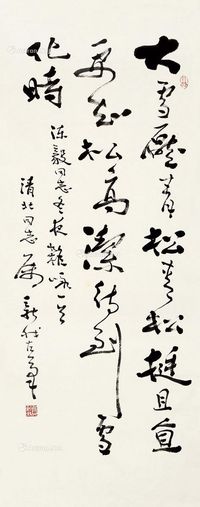 大雪壓青松青松挺且直
要知松高潔待到雪
化時
陈毅同志冬夜雜咏一首
清北同志屬